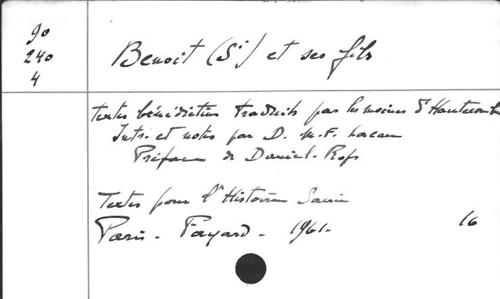 90
240
4
Benoit (St) et ses fils
textes bénédictins traduits par les moines d'Hautecombe
Intr. et notes par D. M.-F. Lacan
Préface de Daniel-Rops
Textes pour l'Histoire Sacrée
Paris - Fayard - 1961-
16